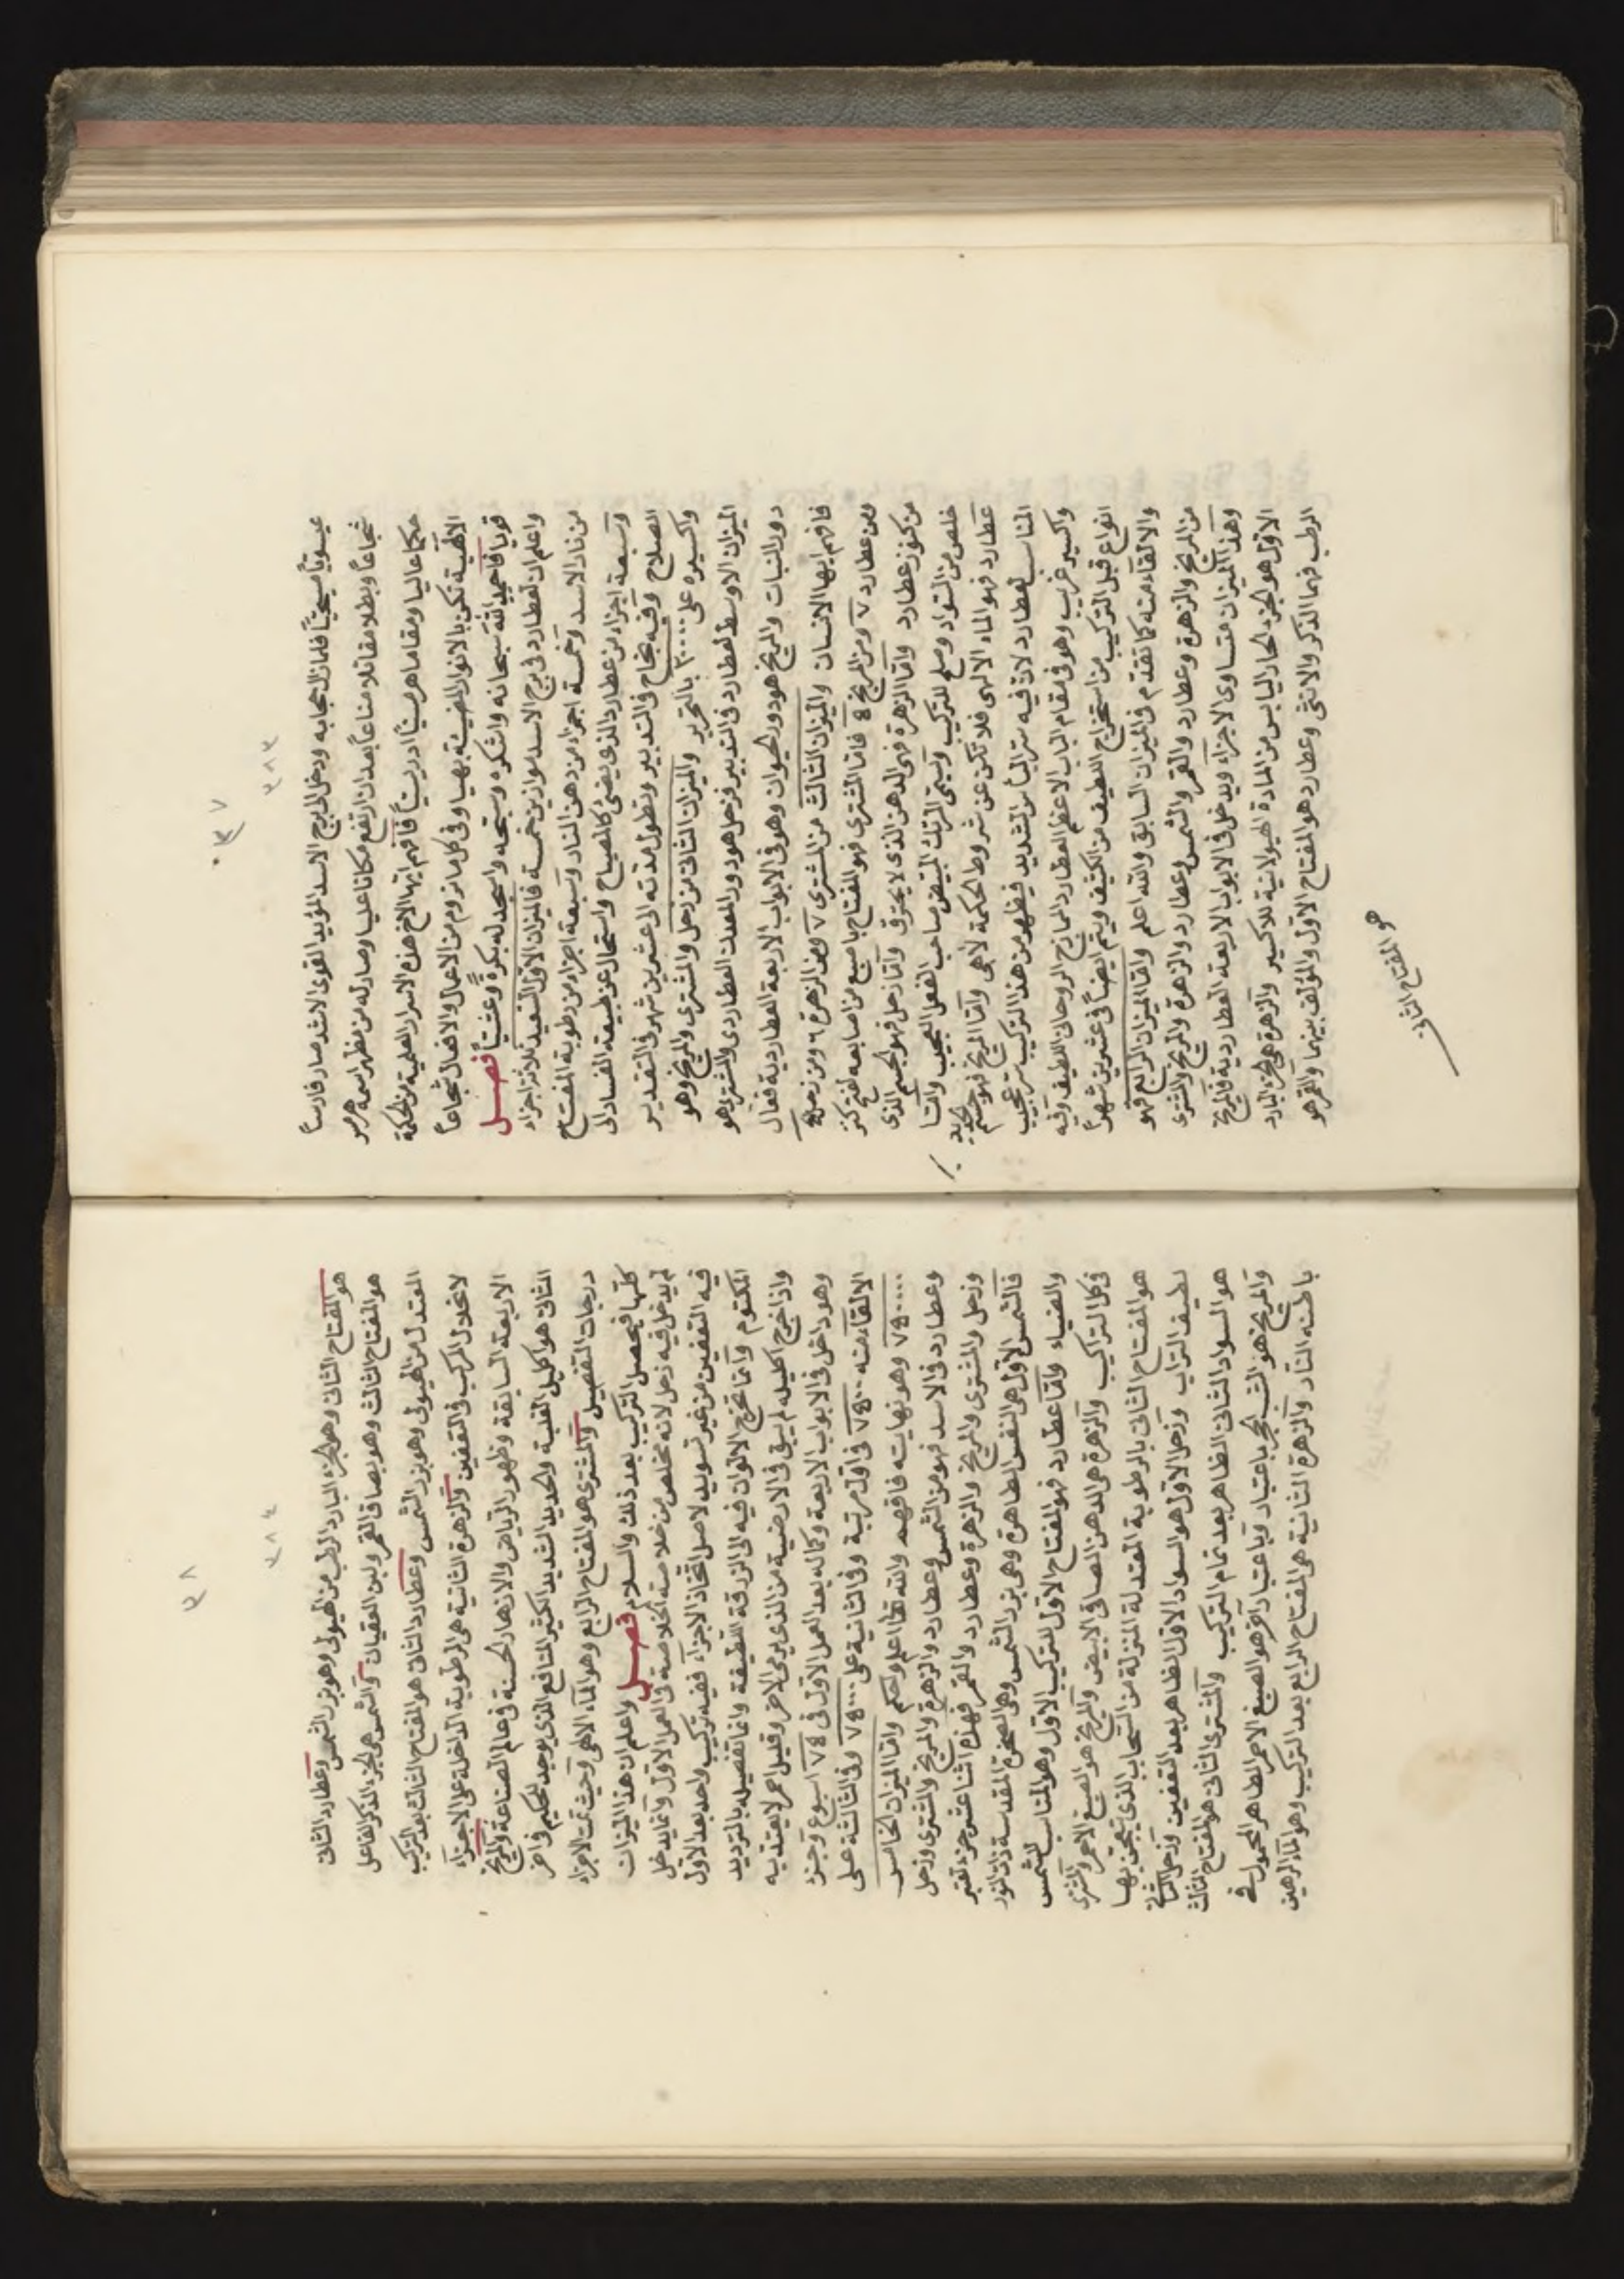 ٣٧
٣٨٣
عيسوياً مسيحيّاً فلما نزل بجابه ودخل الى برج الاسد المؤيد القوى الاشد صار فارساً
شجاعاً وبطلا مقاتلا مناعاً بعد ان ارتفع مكانا عليا وصار له من مظهر اسمه هرمس
حكما عاليا ومقاما هرمسيّاً ادريسيّاً فافهم ايها الاخ هذه الاسرار العلمية من الحكمة
الالهية تكن بالانوار المضيئة بهيا وفي كل ما تروم من الاعمال والافعال شجاعاً
قويا فاحمد الله سبحانه واشكره وسبحه واسجد له بكرةً وعشيّاً فصـــل
واعلم ان لعطارد في برج الاسد موازين خمسة فالميزان الاول السعيد ثلاثة اجزاء
من نار الاسد وخمسة اجزاء من دهن النار وسبعة اجزاء من رطوبة المفتاح
وسبعة اجزاء من عطارد الذي يضئ كالمصباح واستحال عن طبيعة الفساد الى
الصلاح وفيه نجاح في التدبير وتطول مدته الى عشرين شهر في التقدير
واكسيره على ٣٠٠٠٠ بالتحرير والميزان الثاني من زحل والمشترى والمريخ وهو
الميزان الاوسط لعطارد في التدبير فزحل هو دور المعدن العطاردى والمشترى هو
دور النبات والمريخ هو دور الحيوان وهو في الابواب الاربعة العطاردية فعّال
فافهم ايها الانسان والميزان الثالث من المشترى ٧ ومن الزهرة ٦ ومن زحل ٤
ومن عطارد ٧ ومن المريخ ٥ فاما المشترى فهو المفتاح باصبع من اصابعه لفتح كنز
من كنوز عطارد واما الزهرة فهي الدهن الذي لا يحترق واما زحل فهو الجسم الذي
خلص من السواد وصلح للتركيب وتسمى المرتك المبيض صاحب الفعل العجيب واما
عطارد فهو الماء الالهى فلا تكن عن شروط الحكمة لاهى واما المريخ فهو جسم الحديد
المناسب لعطارد لان فيه سر البأس الشديد فيظهر من هذا التركيب سر عجيب
واكسير غريب وهو في مقام الباب الاعظم العطارد الممازج الروحاني اللطيف وفيه
انواع قبل التركيب من استخراج اللطيف من الكثيف ويتم ايضاً في عشرين شهراً
والالقاء منه كما تقدم في الميزان السابق والله اعلم واما الميزان الرابع فهو
من المريخ والزهرة وعطارد والقمر والشمس وعطارد والزهرة والمريخ والمشترى
وهذا الميزان متساوى الاجزاء ويدخل في الابواب الاربعة العطاردية فالمريخ
الاول هو الجزء الحار اليابس من المادة الهيولانية للاكسير والزهرة هي الجزء البارد
الرطب فهما الذكر والانثى وعطارد هو المفتاح الاول والمؤلف بينهما والقمر هو
هو المفتاح الثاني
٣٨
٣٨٤
هو المفتاح الثاني وهو الجزء البارد الرطب من الهيولى وهو بزر الشمس وعطارد الثاني
هو المفتاح الثالث وهو بصاق القمر ولبن العقيان والشمس هي الجزء الذكر الفاعل
المعتدل من الهيولى وهو بزر الشمس وعطارد الثاني هو المفتاح الثالث بعد التركيب
لانحلال المركب في التعفين والزهرة الثانية هي الرطوبة الداخلة على الاجزاء
الاربعة السابقة وظهور الرياض والازهار الحسنة في عالم الصناعة والمريخ
الثاني هو اكليل الغلبة والحديد الشديد الكثير المنافع الذي يوجد للحكيم في اخر
درجات التفصيل والمشترى هو المفتاح الرابع وهو الماء الالهى وحيث تمت الاجزاء
كلّها فيحصل التركيب بعد ذلك والسلام فصـــل واعلم ان هذا الميزان
لم يدخل فيه زحل لانه مخلص من خلاصة الخلاصة في العمل الاول وانما يدخل
فيه التعفين من غير تسويد لاصل اتخاذ الاجزاء ففيه تركيب واحد بعد الاول
المكتوم وانما تخرج الالوان فيه الى الزرقة اللطيفة وانما تفصيله بالترديد
واذا خرج اكليله لم يبق في الارضية من الذي يرمى الاخر وقليل احمر لا يعتد به
وهو داخل في الابواب الاربعة وكماله بعد العمل الاول في ٧٥ اسبوع وجزء
الالقاء منه ٧٥٠٠ في اول مرتبة وفي الثانية على ٧٥٠٠٠ وفي الثالثة على
٧٥٠٠٠٠ وهو نهايته فافهم والله تعالى اعلم واحكم واما الميزان الخامس
وعطارد في الاسد فهو من الشمس وعطارد والزهرة والمريخ والمشترى وزحل
وزحل والمشترى والمريخ والزهرة وعطارد والقمر فهذه اثنا عشر جزء تعتبر
فالشمس الاول هي النفس الطاهرة وهي بزر الشمس وهي الصخرة المقدسة ذات النور
والضياء واما عطارد فهو المفتاح الاول للتركيب الاول وهو المناسب للشمس
في كل التراكيب والزهرة هي الدهن الصافى الابيض والمريخ هو الصبغ الاحمر والمشترى
هو المفتاح الثاني بالرطوبة المعتدلة المنزلة من السحاب الذي يعجن بها
لطيف التراب وزحل الاول هو السواد الاول الظاهر بعد التعفين وزحل الثاني
هو السواد الثاني الظاهر بعد تمام التركيب والمشترى الثاني هو المفتاح الثالث
والمريخ هو الشب الحجر باعتبار وباعتبار آخر هو الصبغ الاحمر الطاهر المحمول في
باطنه النار والزهرة الثانية هي المفتاح الرابع بعد التركيب وهو الماء الرهين